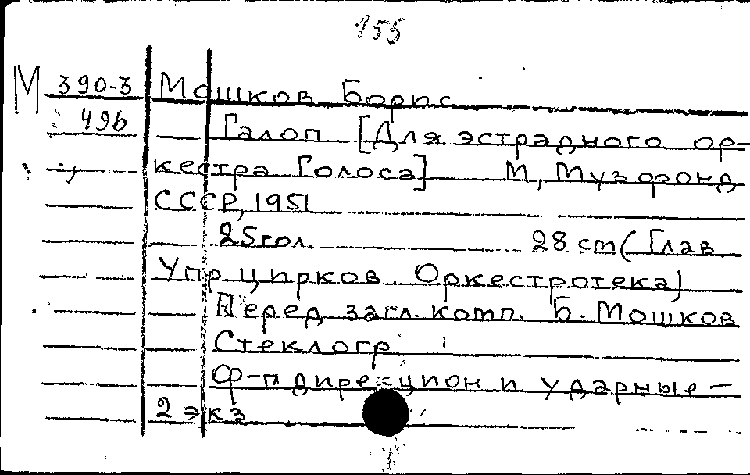 155
М 390-3 Мошков Борис
496 Галоп [Для эстрадного ор-
кестра Голоса] М, Музфонд
СССР, 1951
25гол. 28 cm (Глав
Упр цирков. Оркестротека)
Перед загл. комп. Б. Мошков
Стеклогр
Ф-п дирекцион и ударные -
2 экз